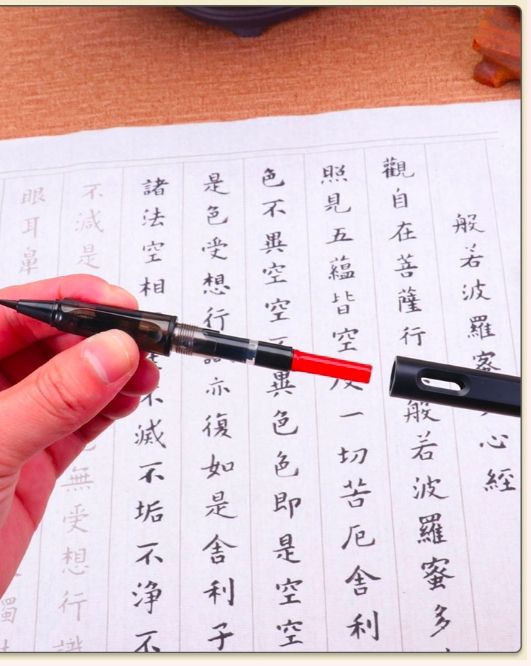 般若波羅蜜心經
觀自在菩薩行般若波羅蜜多
照見五蘊皆空度一切苦厄舍利
色不異空空不異色色即是空空
是色受想行識亦復如是舍利子
諸法空相不滅不垢不淨不
不減是無受想行識
眼耳鼻觸